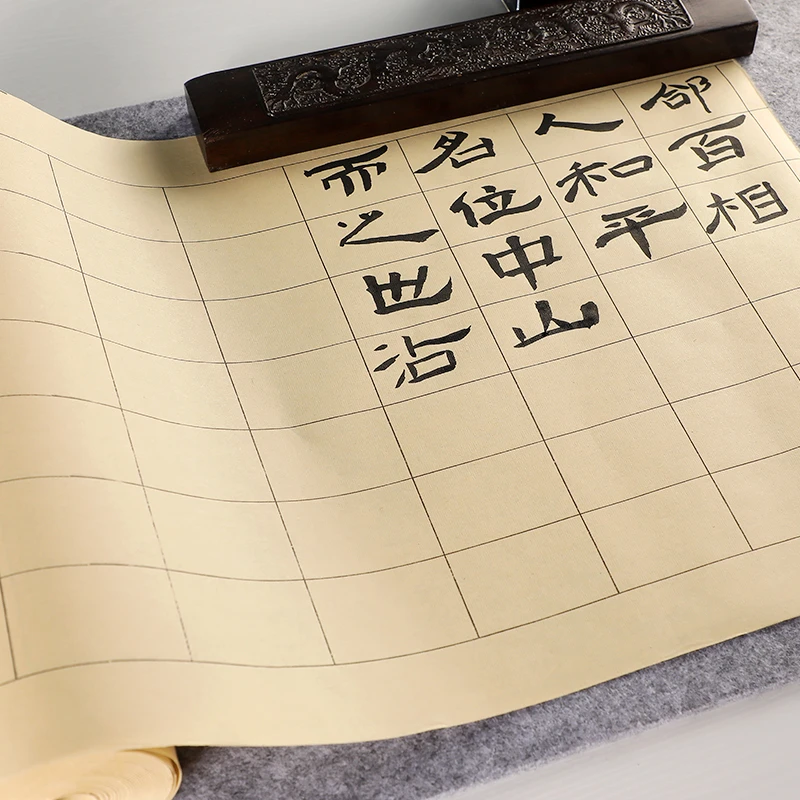 百相
人和平
名位中山
而之世沾